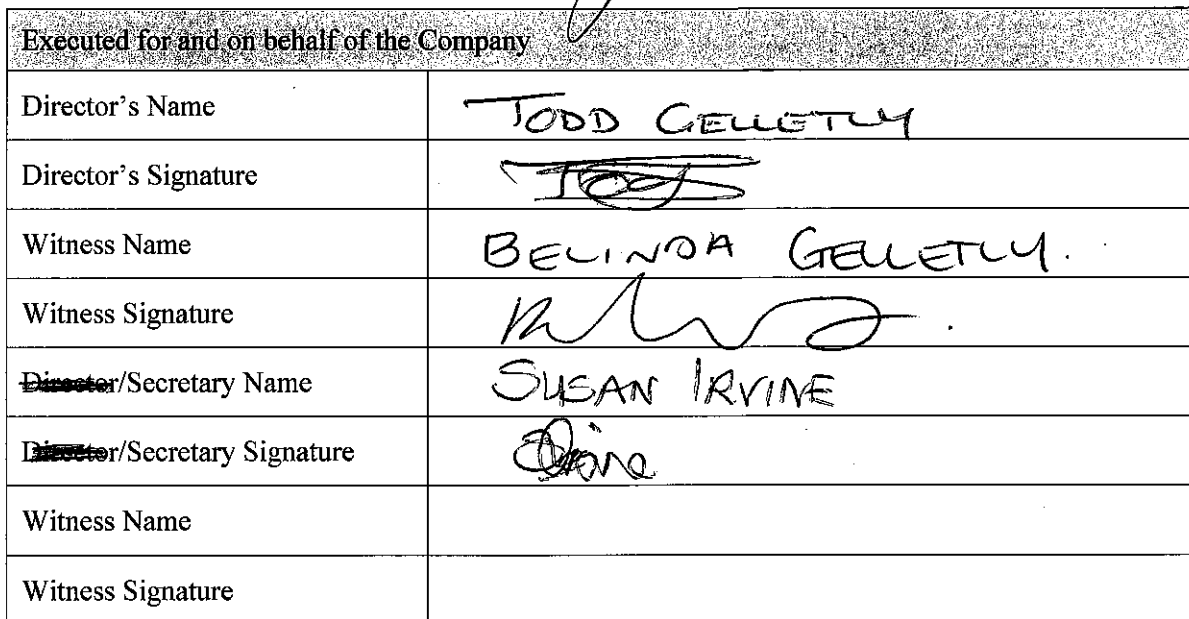 Executed for and on behalf of the Company
Director's Name TODD GELLETLY
Director's Signature
Witness Name BELINDA GELLETLY.
Witness Signature
Director/Secretary Name SUSAN IRVINE
Director/Secretary Signature
Witness Name
Witness Signature